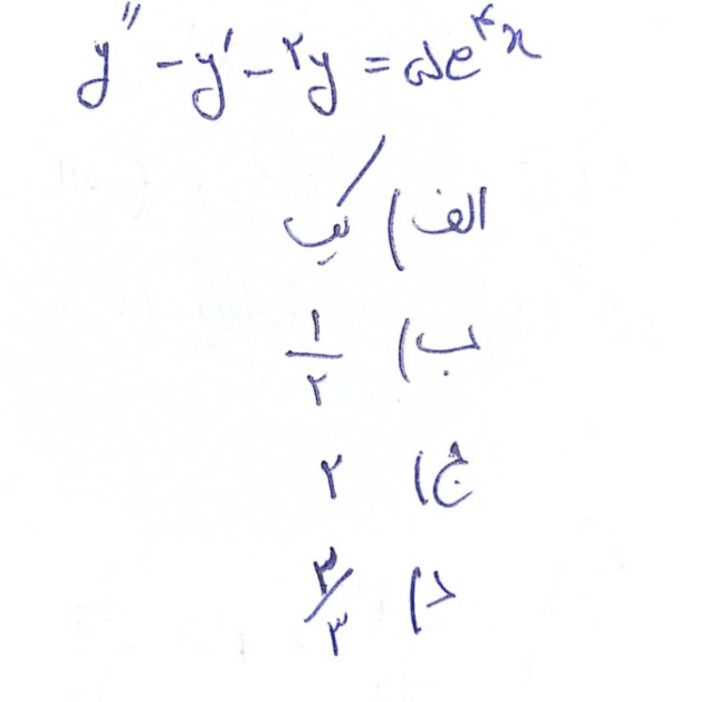 y″ − y′ − ۲y = ۵e^۴x
الف) یک
ب) ۱/۲
ج) ۲
د) ۳/۳